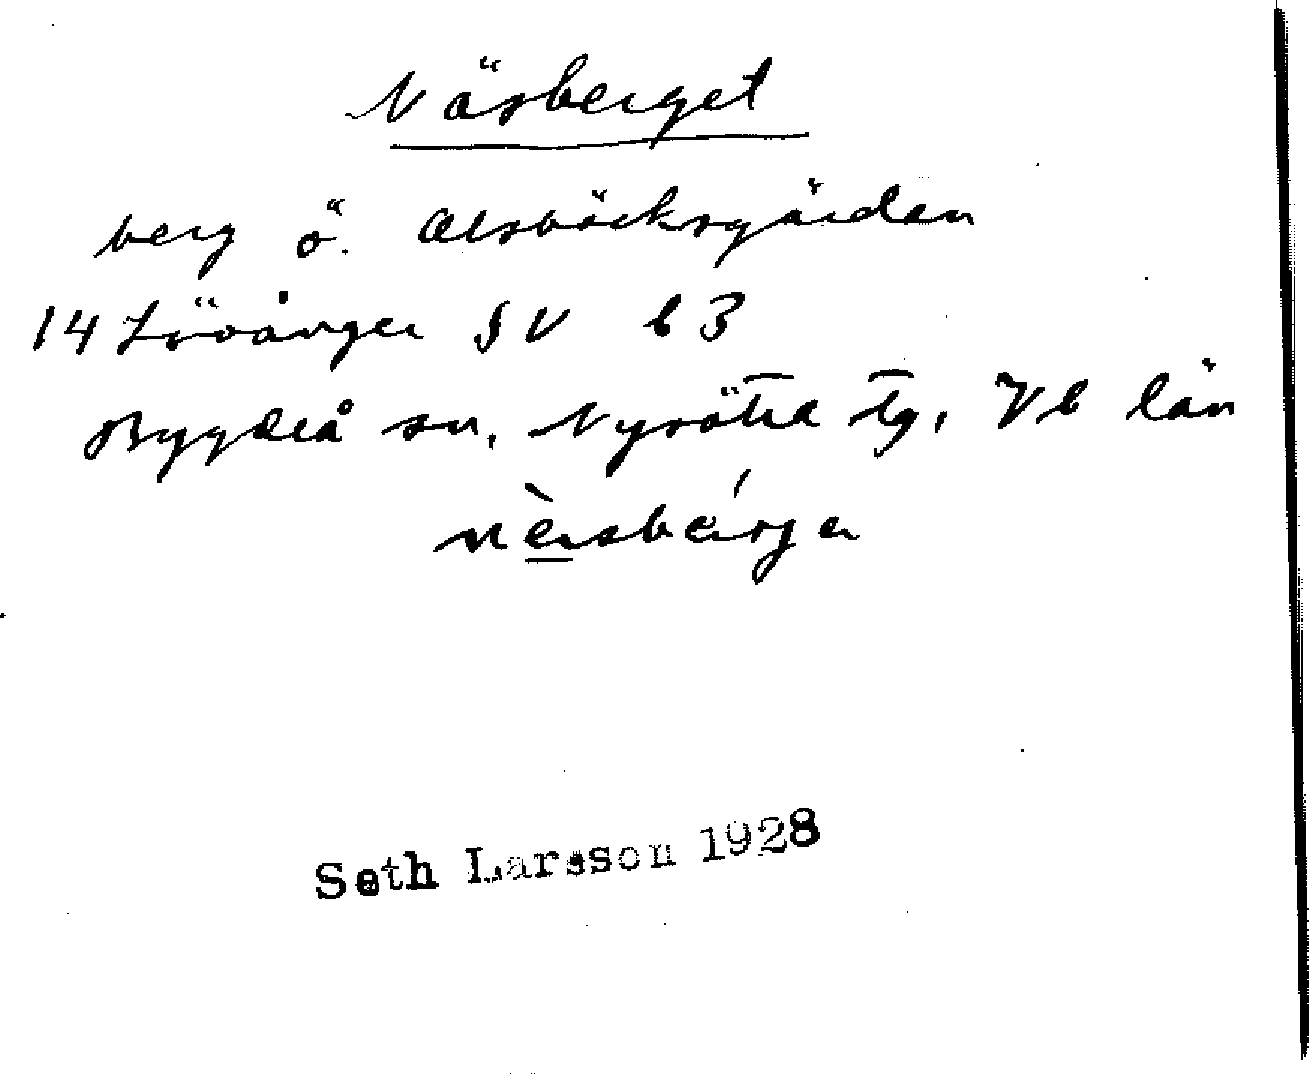 Näsberget
berg ö. Alsbäcksgården
14 Lövånger SV b 3
Bygdeå sn, Nysätra tg, Vb län
nèsbárjə
Seth Larsson 1928